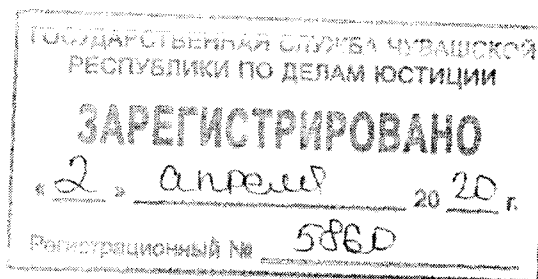 ГОСУДАРСТВЕННАЯ СЛУЖБА ЧУВАШСКОЙ
РЕСПУБЛИКИ ПО ДЕЛАМ ЮСТИЦИИ
ЗАРЕГИСТРИРОВАНО
« 2 » апреля 20 20 г.
Регистрационный № 5860